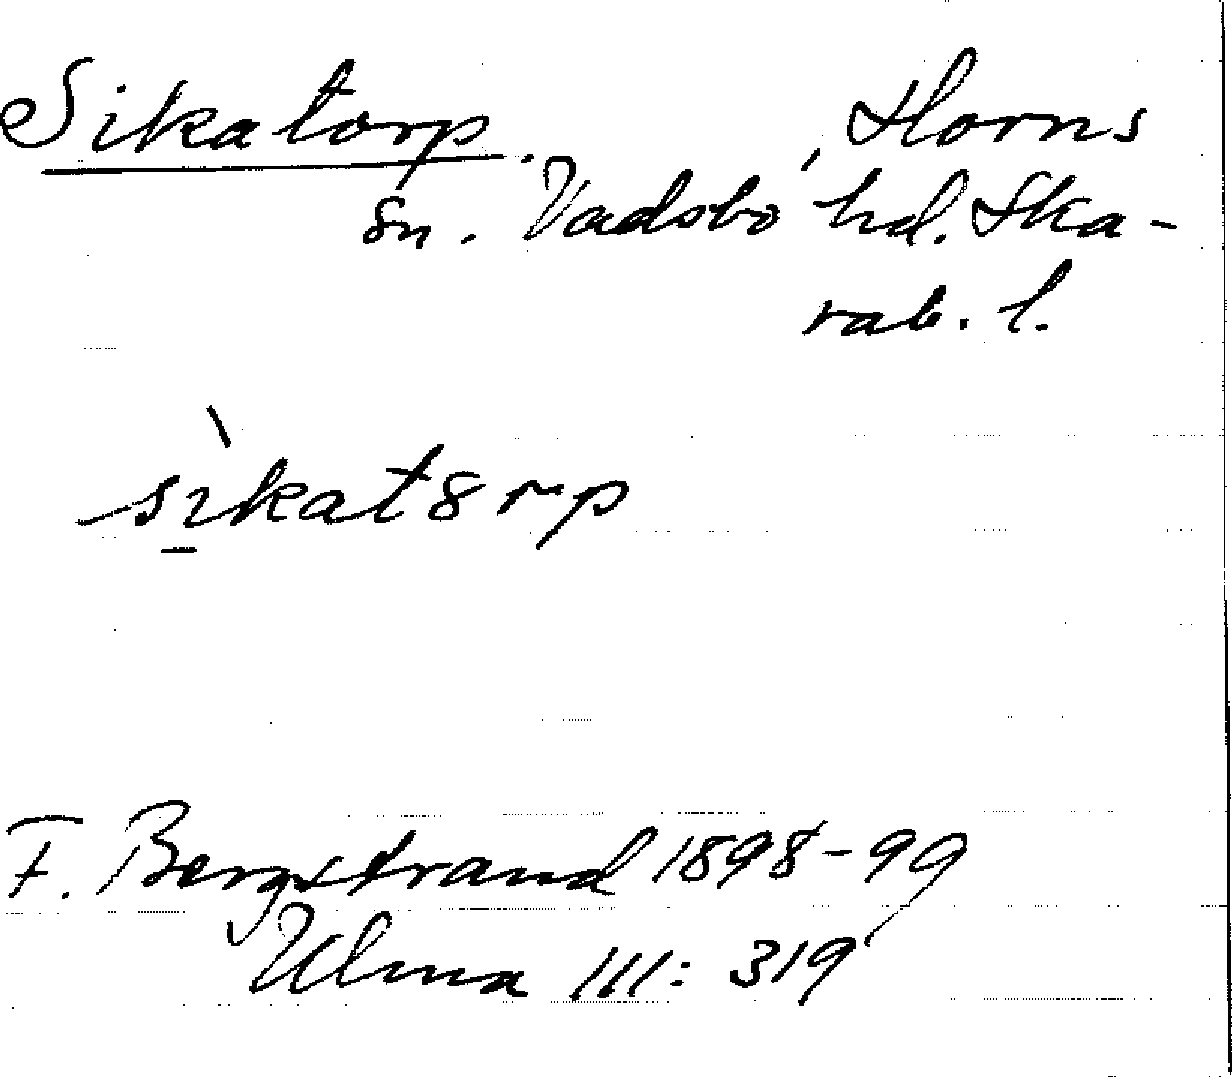 Sikatorp. , Horns
sn. Vadsbo hd. Ska-
rab. l.
sìkat8rp
F. Bergstrand 1898-99
Ulma 111: 319